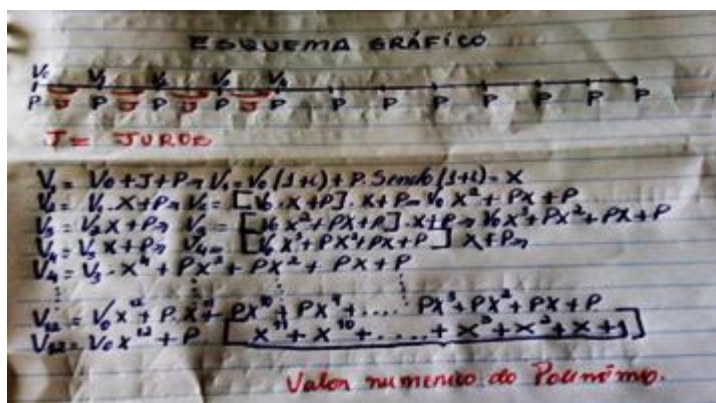 ESQUEMA GRÁFICO
V₀ V₁ V₂ V₃ V₄
P J P J P J P J P P P P P P P P
J = JUROS
V₁ = V₀ + J + P → V₁ = V₀ (1+i) + P. Sendo (1+i) = X
V₂ = V₁ . X + P → V₂ = [V₀ . X + P] . X + P → V₀ X² + PX + P
V₃ = V₂ X + P → V₃ = [V₀ X² + PX + P] . X + P → V₀ X³ + PX² + PX + P
V₄ = V₃ X + P → V₄ = [V₀ X³ + PX² + PX + P] X + P →
V₄ = V₀ . X⁴ + PX³ + PX² + PX + P
V₁₂ = V₀ X¹² + P . X¹¹ + PX¹⁰ + PX⁹ + .... PX³ + PX² + PX + P
V₁₂ = V₀ X¹² + P [X¹¹ + X¹⁰ + .... + X³ + X² + X + 1]
Valor numerico do Polinômio.